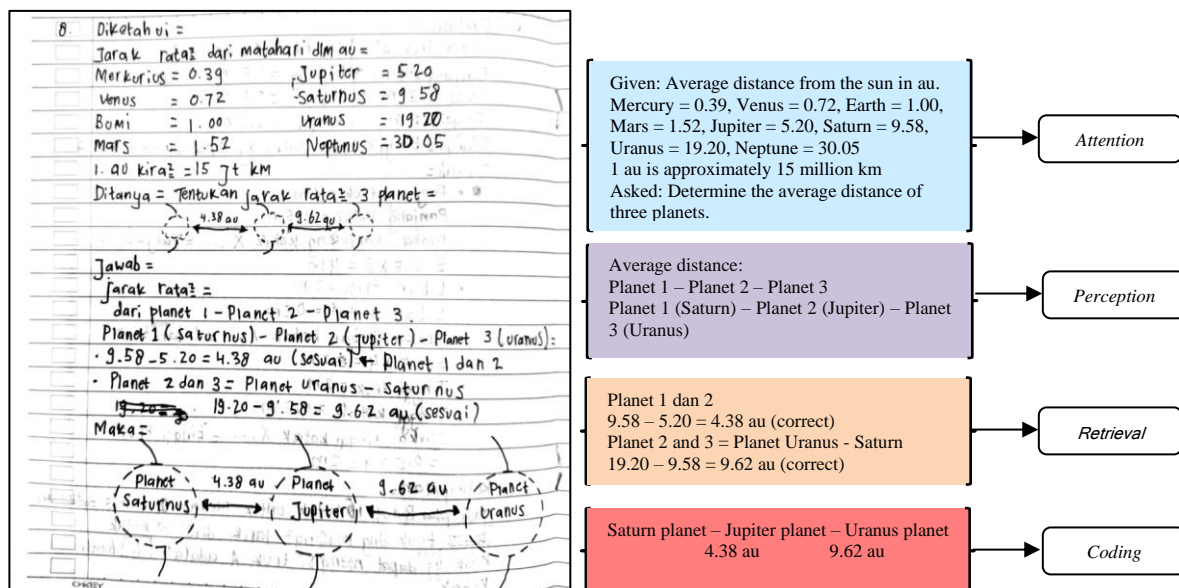 8. Diketahui =
Jarak rata² dari matahari dlm au =
Merkurius = 0.39 Jupiter = 5.20
Venus = 0.72 Saturnus = 9.58
Bumi = 1.00 Uranus = 19.20
Mars = 1.52 Neptunus = 30.05
1. au kira² = 15 jt km
Ditanya = Tentukan jarak rata² 3 planet =
4.38 au 9.62 au
Jawab =
jarak rata² =
dari planet 1 - Planet 2 - Planet 3.
Planet 1 (saturnus) - Planet 2 (jupiter) - Planet 3 (uranus):
· 9.58 - 5.20 = 4.38 au (sesuai) ← Planet 1 dan 2
· Planet 2 dan 3 = Planet uranus - saturnus
19.20 - 9.58 = 9.62 au (sesuai)
Maka =
Planet 4.38 au Planet 9.62 au Planet
Saturnus Jupiter Uranus
Given: Average distance from the sun in au.
Mercury = 0.39, Venus = 0.72, Earth = 1.00,
Mars = 1.52, Jupiter = 5.20, Saturn = 9.58,
Uranus = 19.20, Neptune = 30.05
1 au is approximately 15 million km
Asked: Determine the average distance of
three planets.
Attention
Average distance:
Planet 1 – Planet 2 – Planet 3
Planet 1 (Saturn) – Planet 2 (Jupiter) – Planet
3 (Uranus)
Perception
Planet 1 dan 2
9.58 – 5.20 = 4.38 au (correct)
Planet 2 and 3 = Planet Uranus - Saturn
19.20 – 9.58 = 9.62 au (correct)
Retrieval
Saturn planet – Jupiter planet – Uranus planet
4.38 au 9.62 au
Coding